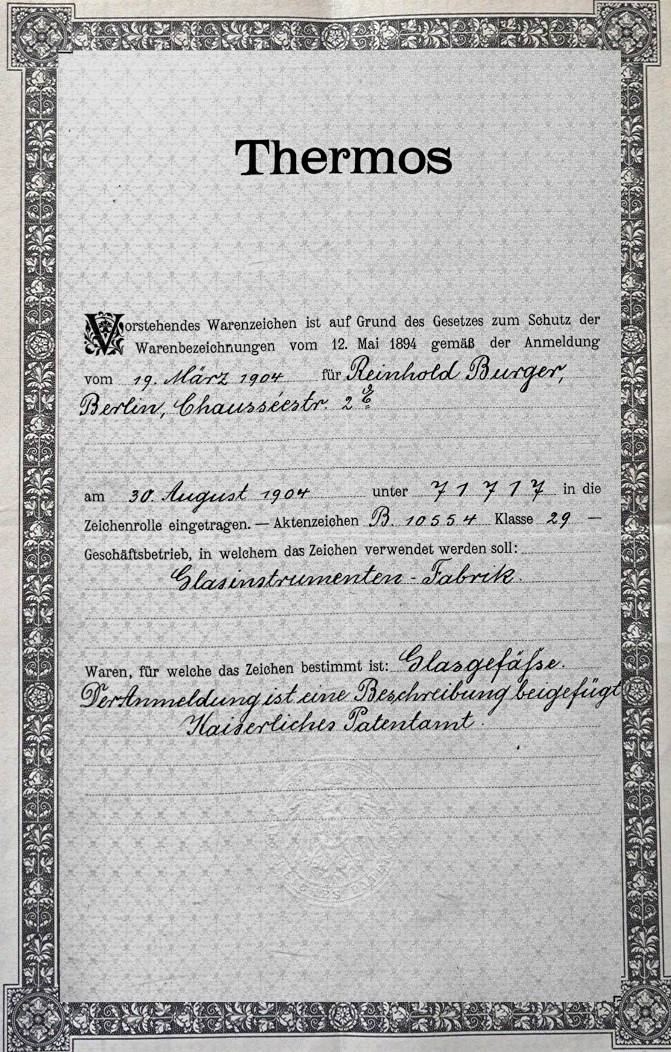 Thermos
Vorstehendes Warenzeichen ist auf Grund des Gesetzes zum Schutz der
Warenbezeichnungen vom 12. Mai 1894 gemäß der Anmeldung
vom 19. März 1904 für Reinhold Burger,
Berlin, Chausseestr. 2 E
am 30. August 1904 unter 71717 in die
Zeichenrolle eingetragen. — Aktenzeichen B. 10554 Klasse 29 —
Geschäftsbetrieb, in welchem das Zeichen verwendet werden soll:
Glasinstrumenten-Fabrik.
Waren, für welche das Zeichen bestimmt ist: Glasgefäſse.
Der Anmeldung ist eine Beschreibung beigefügt
Kaiserliches Patentamt.